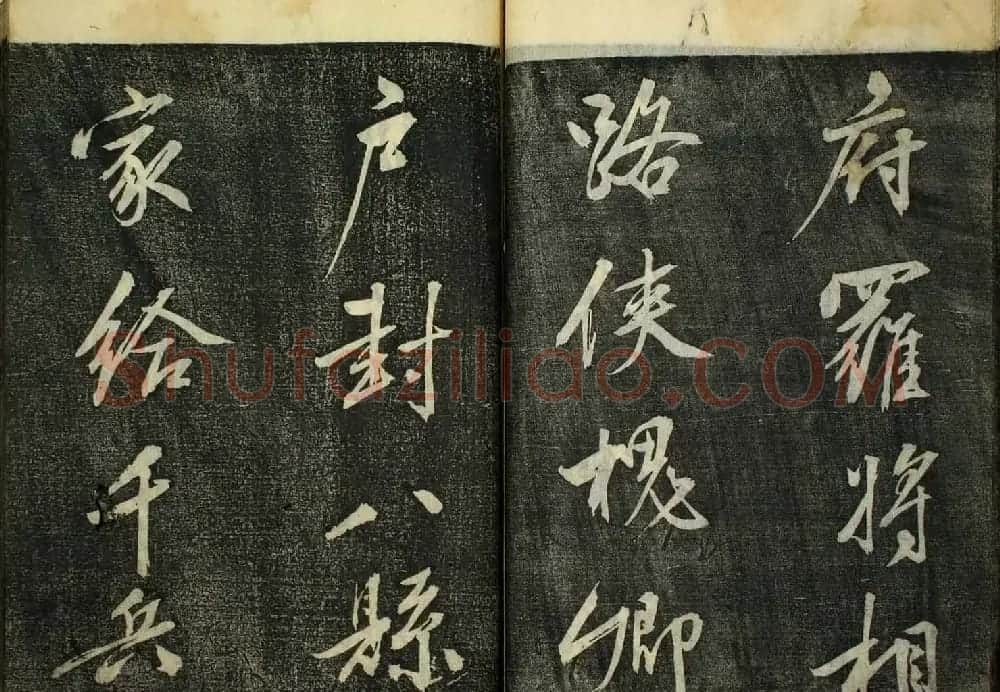 府羅將相
路俠槐卿
戶封八縣
家給千兵
Shufaziliao.COM